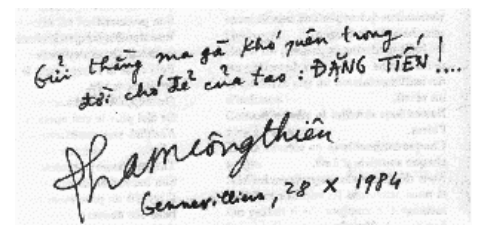 Gửi thằng ma gà khó quên trong
đời chó đẻ của tao : ĐẶNG TIẾN !....
Phamcôngthiện
Gennevilliers, 28 X 1984